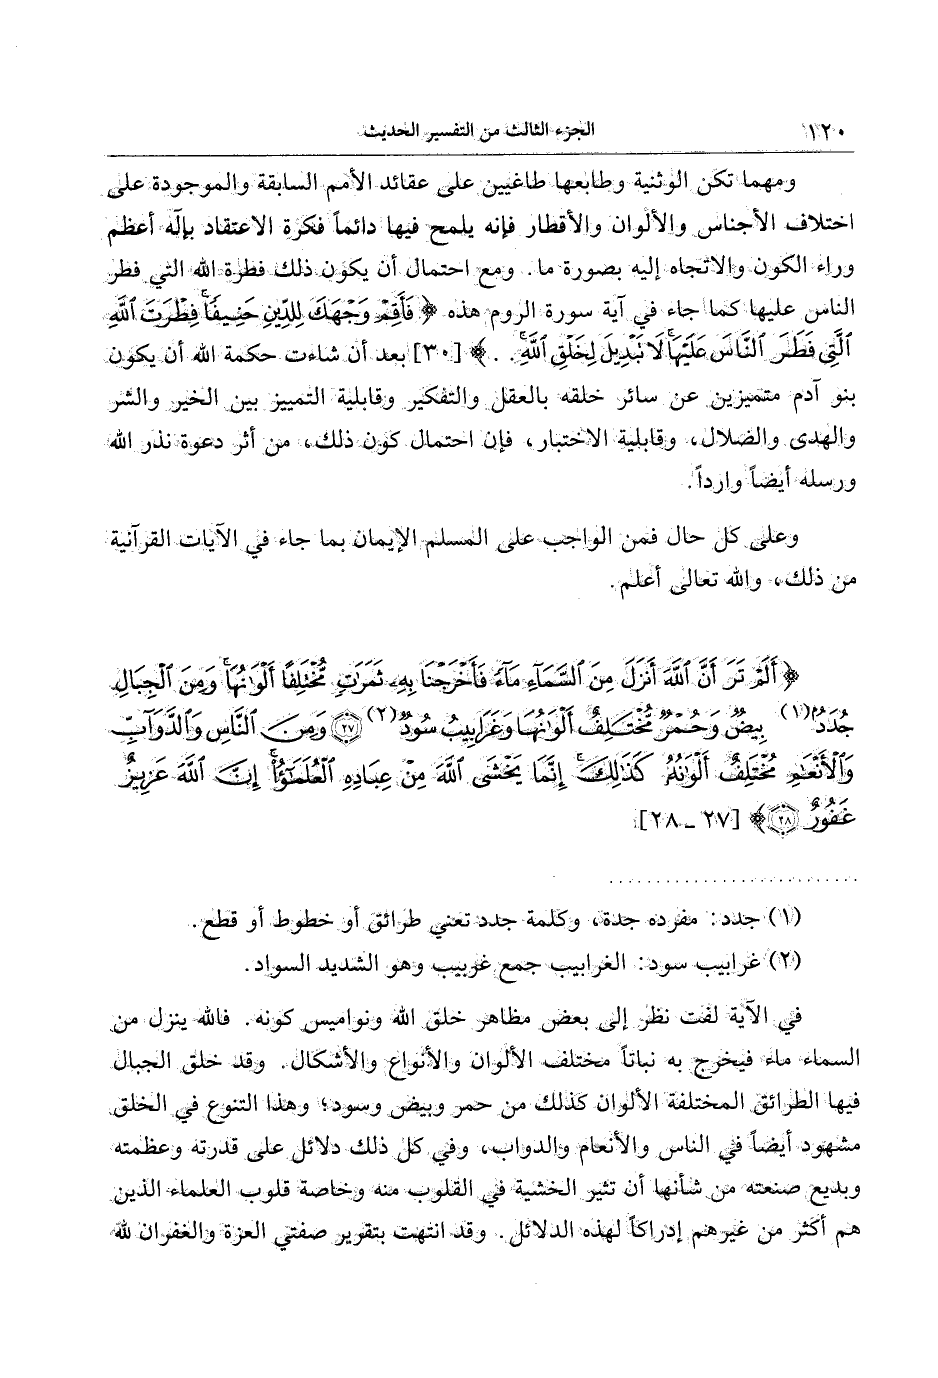 ١٢٠ الجزء الثالث من التفسير الحديث
ومهما تكن الوثنية وطابعها طاغيين على عقائد الأمم السابقة والموجودة على
اختلاف الأجناس والألوان والأقطار فإنه يلمح فيها دائماً فكرة الاعتقاد بإلٓه أعظم
وراء الكون والاتجاه إليه بصورة ما. ومع احتمال أن يكون ذلك فطرة الله التي فطر
الناس عليها كما جاء في آية سورة الروم هذه ﴿ فَأَقِمْ وَجْهَكَ لِلدِّينِ حَنِيفًا ۚ فِطْرَتَ ٱللَّهِ
ٱلَّتِي فَطَرَ ٱلنَّاسَ عَلَيْهَا ۚ لَا تَبْدِيلَ لِخَلْقِ ٱللَّهِ ۚ . .﴾ [٣٠] بعد أن شاءت حكمة الله أن يكون
بنو آدم متميزين عن سائر خلقه بالعقل والتفكير وقابلية التمييز بين الخير والشر
والهدى والضلال، وقابلية الاختبار، فإن احتمال كون ذلك، من أثر دعوة نذر الله
ورسله أيضاً وارداً.
وعلى كل حال فمن الواجب على المسلم الإيمان بما جاء في الآيات القرآنية
من ذلك، والله تعالى أعلم.
﴿ أَلَمْ تَرَ أَنَّ ٱللَّهَ أَنزَلَ مِنَ ٱلسَّمَآءِ مَآءً فَأَخْرَجْنَا بِهِۦ ثَمَرَٰتٍ مُّخْتَلِفًا أَلْوَٰنُهَا ۚ وَمِنَ ٱلْجِبَالِ
جُدَدٌۢ (١) بِيضٌ وَحُمْرٌ مُّخْتَلِفٌ أَلْوَٰنُهَا وَغَرَابِيبُ سُودٌ (٢) ٢٧ وَمِنَ ٱلنَّاسِ وَٱلدَّوَآبِّ
وَٱلْأَنْعَٰمِ مُخْتَلِفٌ أَلْوَٰنُهُۥ كَذَٰلِكَ ۗ إِنَّمَا يَخْشَى ٱللَّهَ مِنْ عِبَادِهِ ٱلْعُلَمَٰٓؤُا۟ ۗ إِنَّ ٱللَّهَ عَزِيزٌ
غَفُورٌ ٢٨﴾ [٢٧ ـ ٢٨].
. . . . . . . . . . . . . . . . . . . . . . . . .
(١) جدد: مفرده جدة، وكلمة جدد تعني طرائق أو خطوط أو قطع.
(٢) غرابيب سود: الغرابيب جمع غربيب وهو الشديد السواد.
في الآية لفت نظر إلى بعض مظاهر خلق الله ونواميس كونه. فالله ينزل من
السماء ماء فيخرج به نباتاً مختلف الألوان والأنواع والأشكال. وقد خلق الجبال
فيها الطرائق المختلفة الألوان كذلك من حمر وبيض وسود؛ وهذا التنوع في الخلق
مشهود أيضاً في الناس والأنعام والدواب، وفي كل ذلك دلائل على قدرته وعظمته
وبديع صنعته من شأنها أن تثير الخشية في القلوب منه وخاصة قلوب العلماء الذين
هم أكثر من غيرهم إدراكاً لهذه الدلائل. وقد انتهت بتقرير صفتي العزة والغفران لله